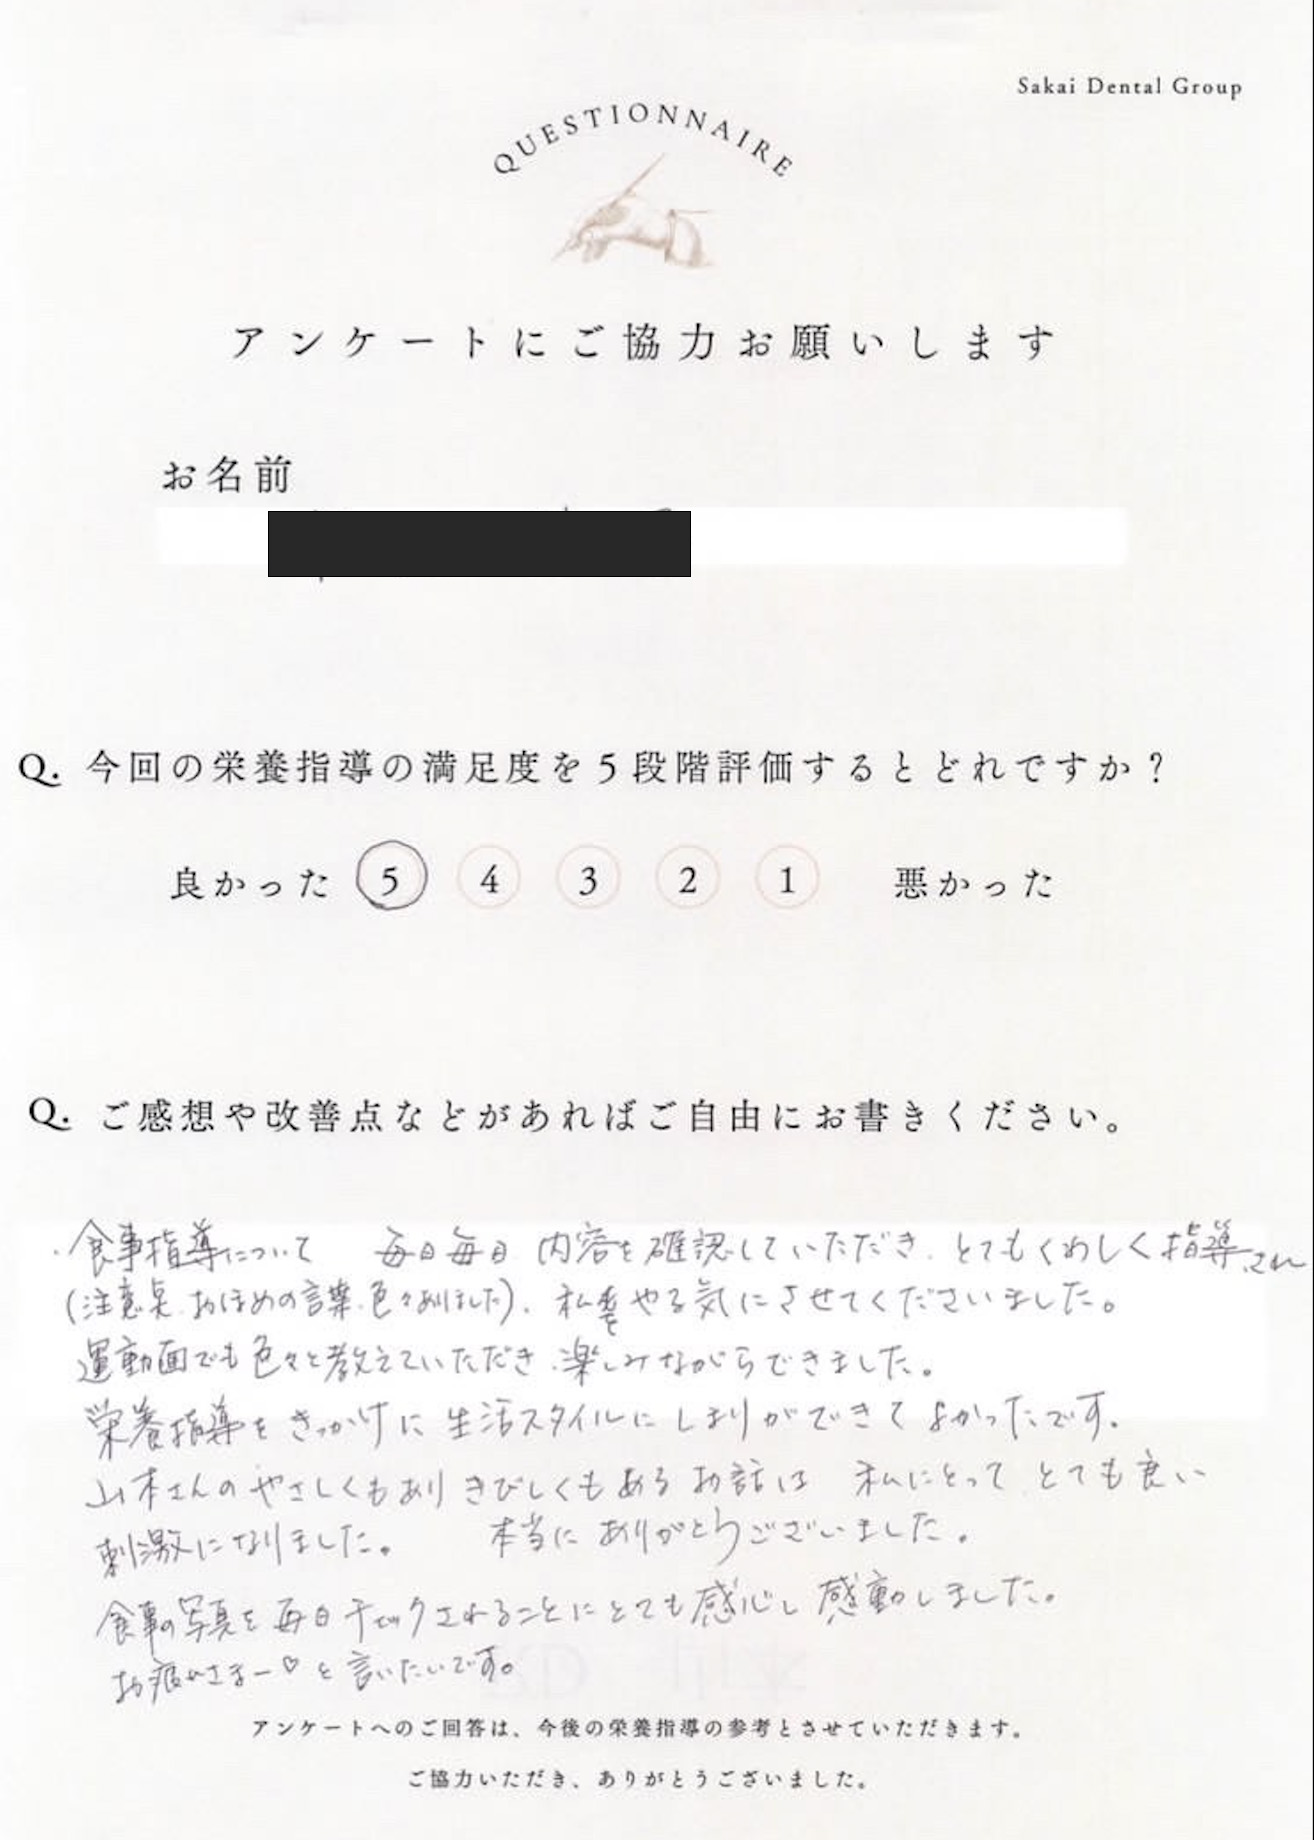 Sakai Dental Group
QUESTIONNAIRE
アンケートにご協力お願いします
お名前
Q. 今回の栄養指導の満足度を5段階評価するとどれですか？
良かった 5 4 3 2 1 悪かった
Q. ご感想や改善点などがあればご自由にお書きください。
・食事指導について 毎日毎日 内容を確認していただき、とてもくわしく指導され
(注意点、おほめの言葉、色々ありました)、私をやる気にさせてくださいました。
運動面でも色々と教えていただき、楽しみながらできました。
栄養指導をきっかけに生活スタイルにしまりができてよかったです。
山本さんのやさしくもありきびしくもあるお話は 私にとって、とても良い
刺激になりました。 本当にありがとうございました。
食事の写真を毎日チェックされることにとても感心し感動しました。
お疲れさまー♡と言いたいです。
アンケートへのご回答は、今後の栄養指導の参考とさせていただきます。
ご協力いただき、ありがとうございました。